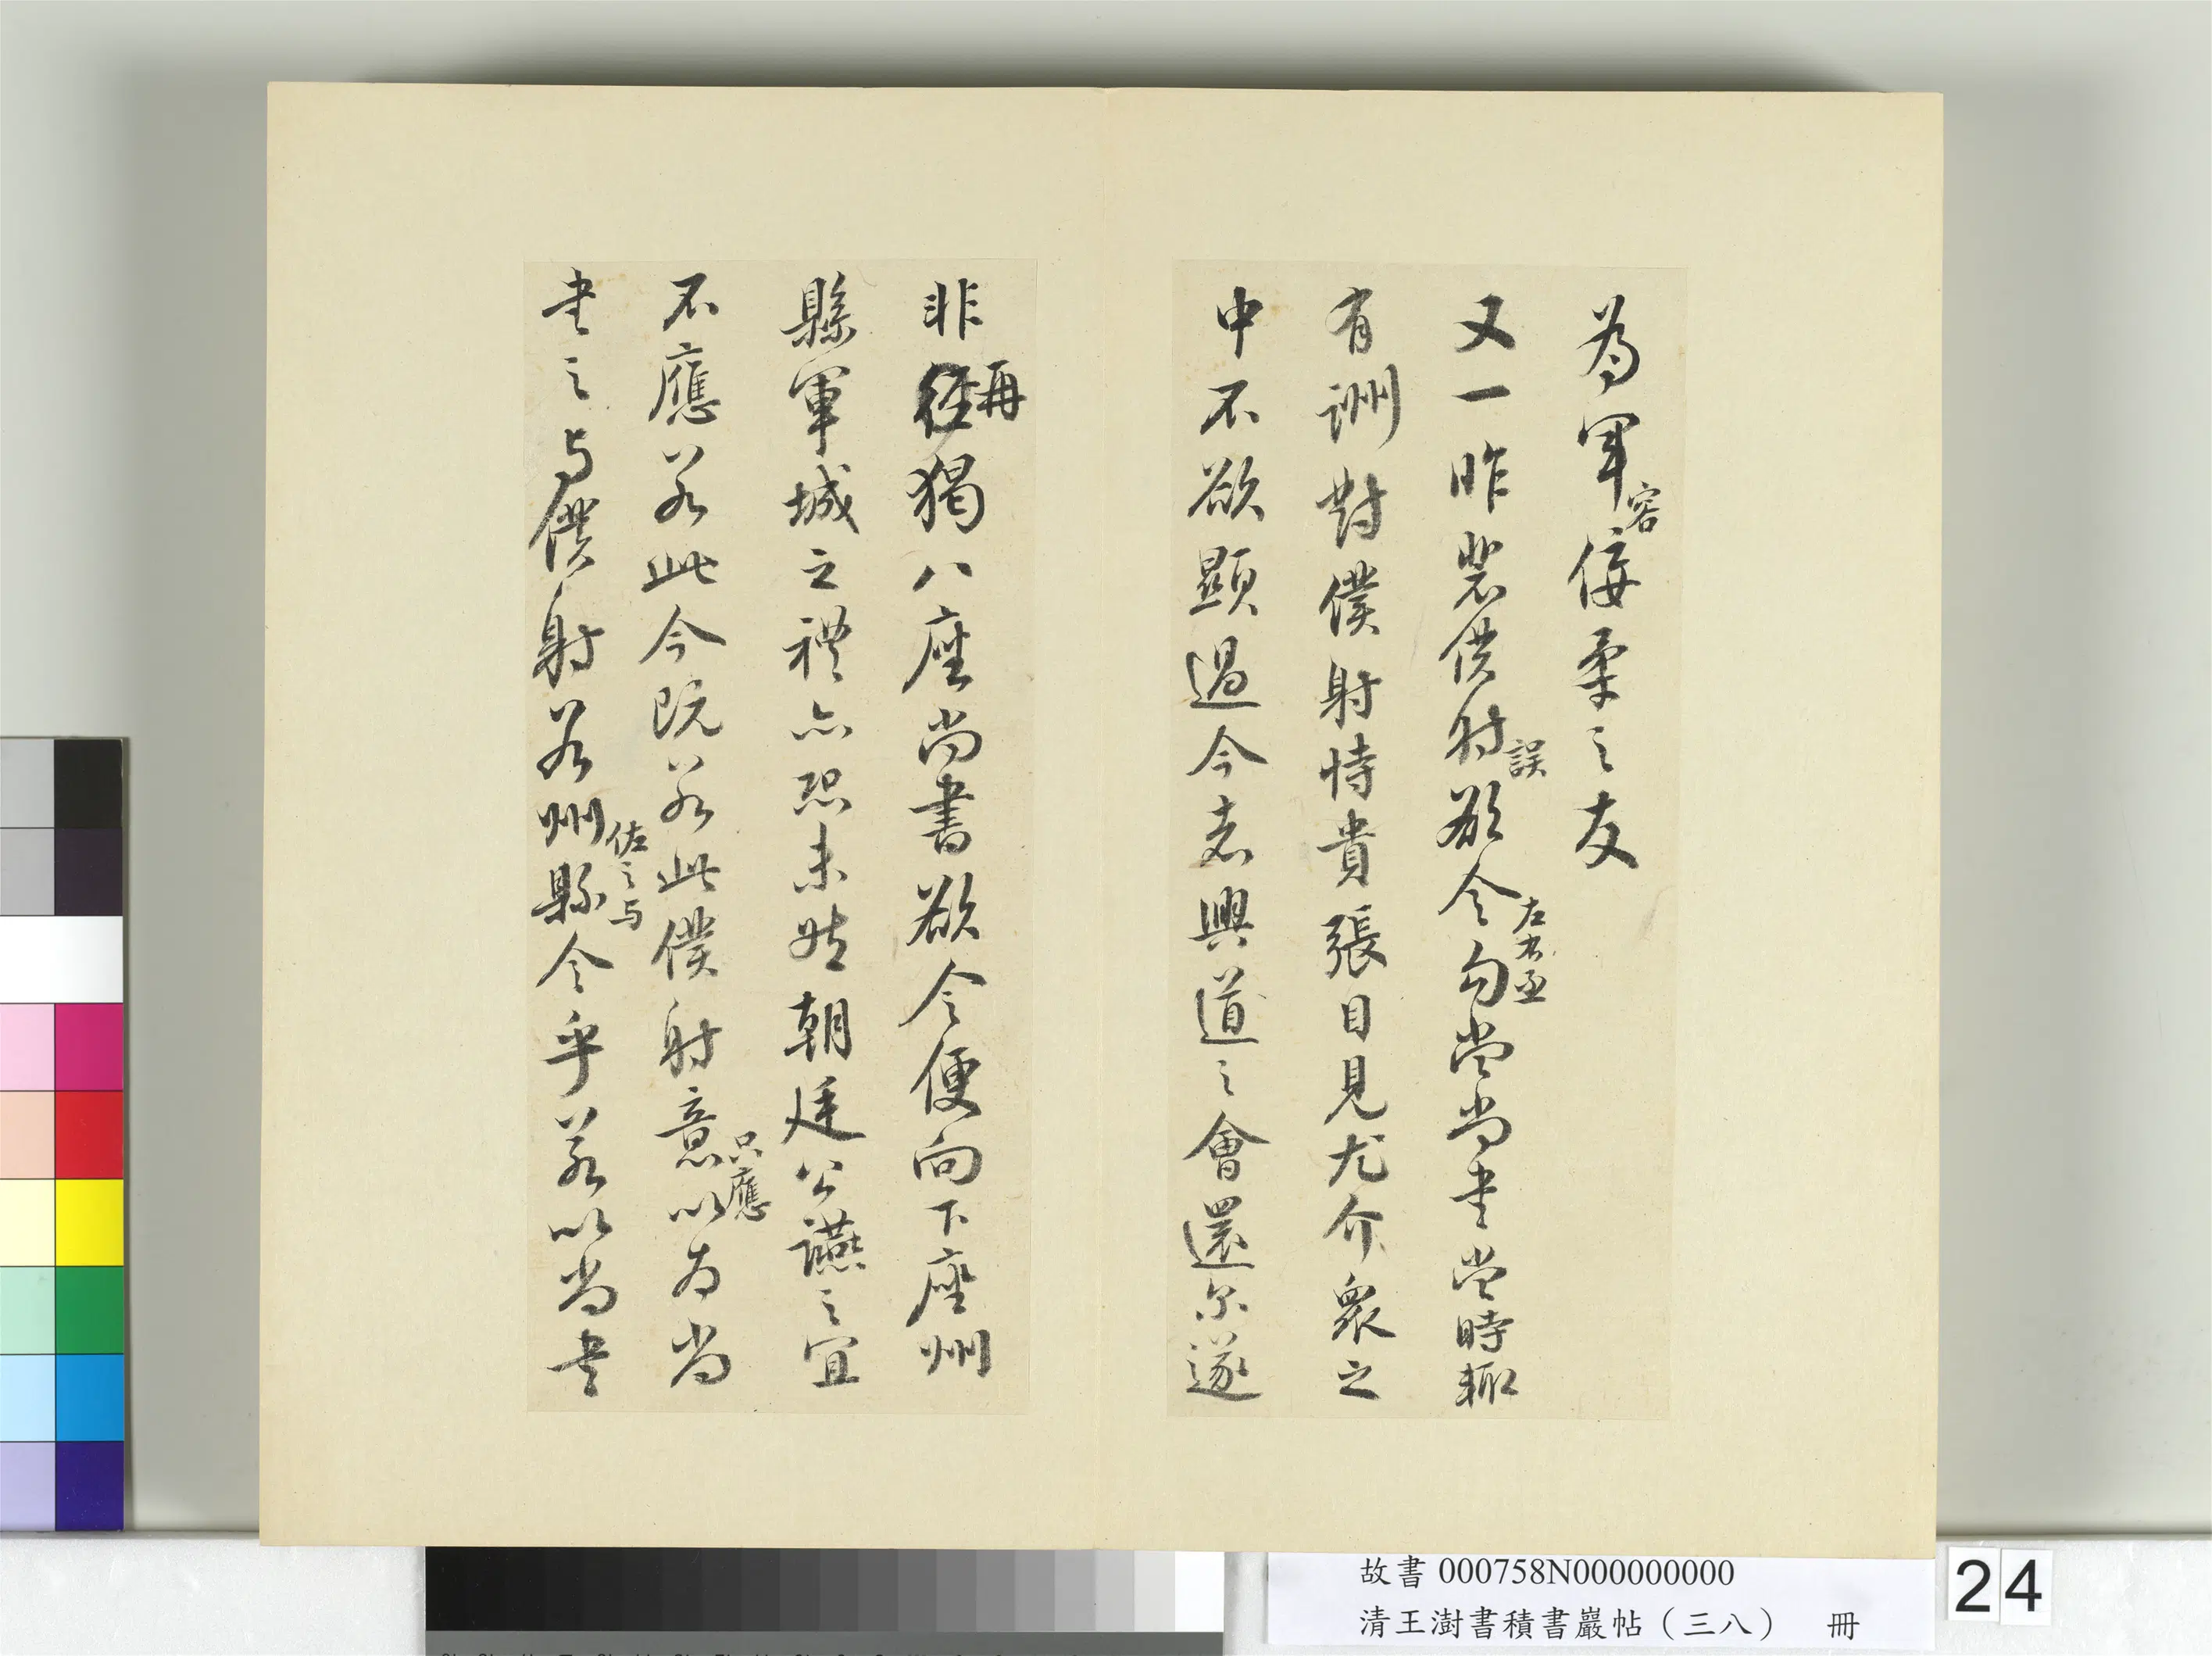 為軍容佞柔之友
又一昨裴僕射誤欲令左右丞勾當尚書當時輒
有詶對僕射恃貴張目見尤介衆之
中不欲顯過今者興道之會還尓遂
非再猲八座尚書欲令便向下座州
縣軍城之禮亦恐未然朝廷公讌之宜
不應若此今既若此僕射意只應以為尚
書之与僕射若州佐之与縣令乎若以尚書
故書 000758N000000000
清王澍書積書巖帖(三八) 冊
24